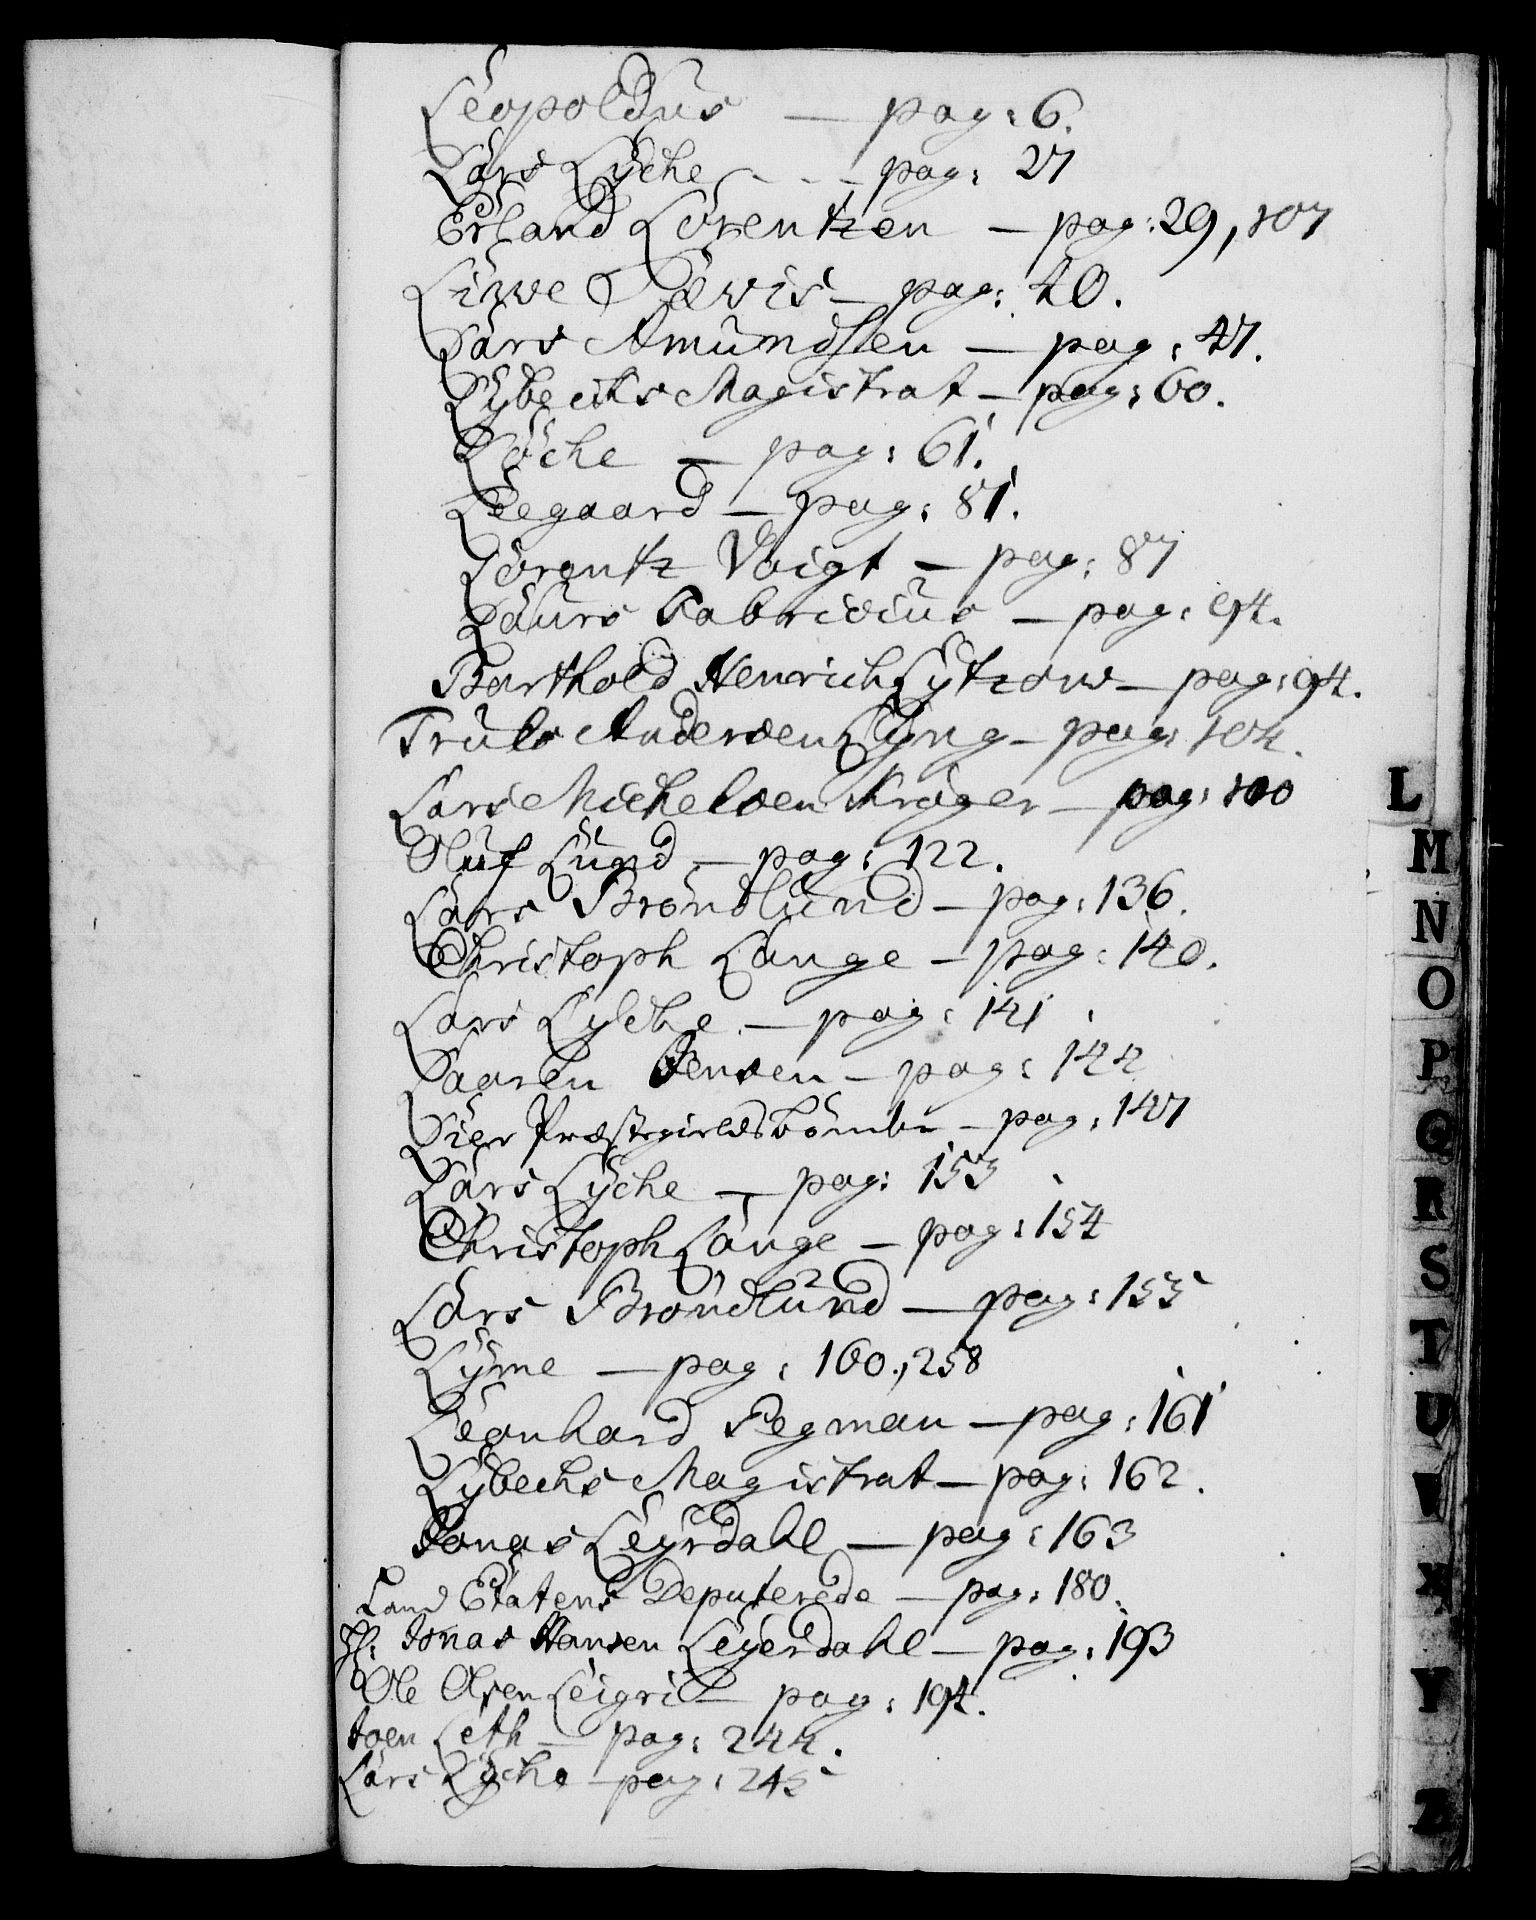 Leopoldus — pag: 6.
Lars Lyche - - - pag: 27
Erland Lorentzen — pag: 29, 107
Liwe Lewis — pag: 40.
Lars Amundsen — pag: 47.
Lybecks Magistrat — pag: 60.
Lyche — pag: 61.
Leegaard — pag: 81.
Lorentz Voigt — pag: 87
Laurs Fabricius — pag: 94.
Barthold Henrich Lytzow — pag: 94.
Truls Andersen Lyng — pag: 104.
Lars Michelsen Krager — pag: 100
Oluf Lund — pag: 122.
Lars Brondlund — pag: 136.
Christoph Lange — pag: 140.
Lars Lyche — pag: 141.
Laaren Jensen — pag: 144
Lier Præstegields bönder — pag: 147
Lars Lyche — pag: 153
Christoph Lange — pag: 154
Lars Brondlund — pag: 155
Lyme — pag: 160., 258
Leonhard Segman — pag: 161
Lybechs Magistrat — pag: 162.
Jonas Leyrdahl — pag: 163
Land Etatens Deputerede — pag: 180.
H: Jonas Hansen Leyerdahl — pag: 193
Ole Olsen — pag: 194.
Leth — pag: 244.
Lars Lyche — pag: 245
L
M
N
O
P
Q
R
S
T
U
V
X
Y
Z